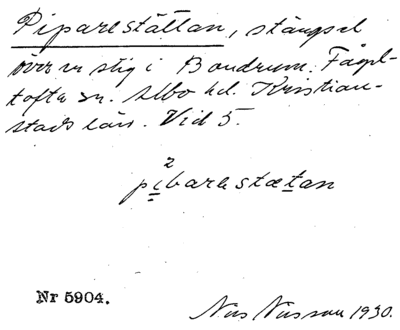 Piparestättan, stängsel
över en stig i Bondrum. Fågel-
tofta sn. Albo hd. Kristian-
stads län. Vid 5.
2
pibarestætan
Nr 5904.
Nils Nilsson 1930.